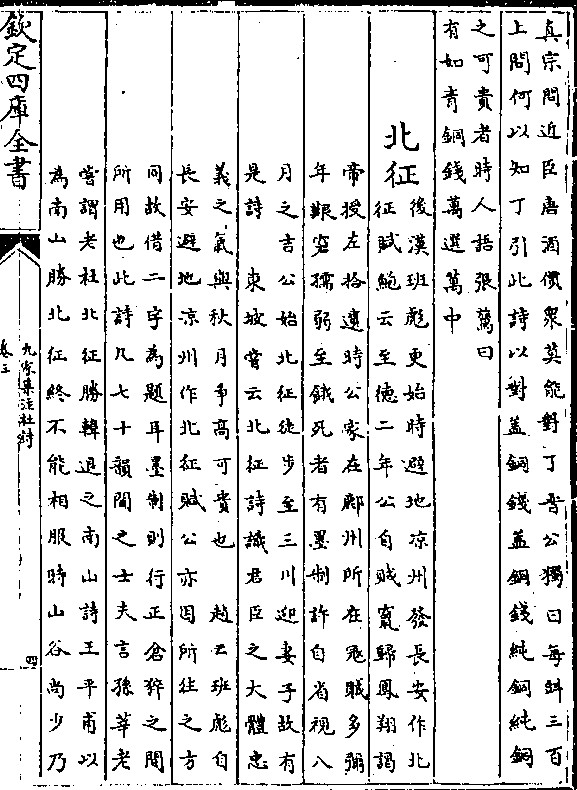 真宗問近臣唐酒價衆莫能對丁晉公獨曰每㪷三百
上問何以知丁引此詩以對蓋銅錢蓋銅錢純銅純銅
之可貴者時人語張薦曰
有如青銅錢萬選萬中
北征
後漢班彪更始時避地凉州發長安作北
征賦鮑云至德二年公自賊竄歸鳳翔謁
帝授左拾遺時公家在鄜州所在冦賊多彌
年艱窶孺弱至餓死者有墨制許自省視八
月之吉公始北征徒步至三川迎妻子故有
是詩 東坡嘗云北征詩識君臣之大體忠
義之氣與秋月争高可貴也 趙云班彪自
長安避地凉州作北征賦公亦因所往之方
同故借二字為題耳墨制則行正倉猝之間
所用也此詩凡七十韻間之士夫言孫莘老
嘗謂老杜北征勝韓退之南山詩王平甫以
為南山勝北征終不能相服時山谷尚少乃
欽定四庫全書
九家集注杜詩
卷三
四